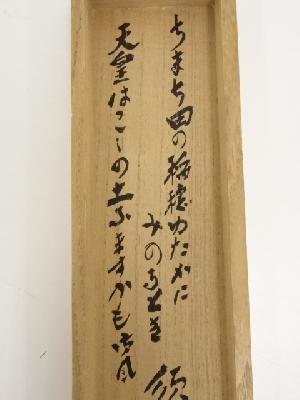 ちまち田の稲穂ゆたかに
みのるとき
天皇はこゝの土ふますかも